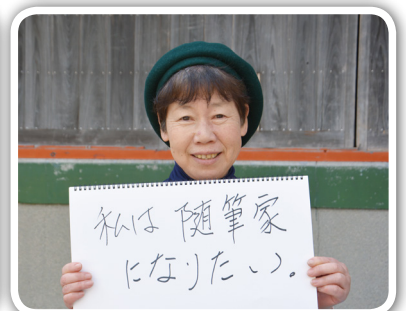 私は 随筆家
になりたい。